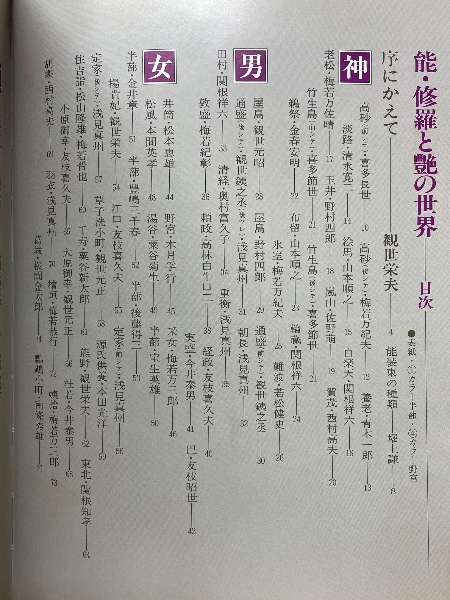 能・修羅と艶の世界 目次
●表紙・(カラー)半蔀・(カラー)野宮
序にかえて 観世栄夫 4 能装束の種類 堀上謙 8
神
高砂・喜多長世 10 高砂(後シテ)・梅若万紀夫 12 養老・青木一郎 13
淡路・清水寛二 14 絵馬・山本順之 15 白楽天・関根祥六 16
老松・梅若万佐晴 17 玉井・野村四郎 18 嵐山・佐野萌 19 賀茂・西村高夫 20
竹生島(前シテ)・喜多節世 21 竹生島(後シテ)・喜多節世 21
鵜祭・金春安明 22 布留・山本順之 23 輪蔵・関根祥六 24
氷室・梅若万紀夫 25 難波・若松健史 26
男
屋島・観世元昭 28 屋島・野村四郎 29 通盛(前シテ)・観世銕之丞 30
通盛(後シテ)・観世銕之丞 31 朝長・浅見真州 32
田村・関根祥六 33 清経・奥村富久子 34 重衡・浅見真州 35
敦盛・梅若紀彰 36 頼政・高林白牛口二 38 経政・友枝喜久夫 40
実盛・今井泰男 41 巴・友枝昭世 42
女
井筒・松本恵雄 44 野宮・木月孚行 45 采女・梅若万三郎 46
松風・本間英孝 48 湯谷・粟谷菊生 49 半蔀・宝生英雄 50
半蔀・金井章 51 半蔀・豊嶋三千春 52 半蔀・後藤得三 53
楊貴妃・観世栄夫 54 江口・友枝喜久夫 55 定家(前シテ)・浅見真州 56
定家(後シテ)・浅見真州 57 草子洗小町・観世元正 58 源氏供養・本田光洋 59
住吉詣・松山隆雄・梅若晋也 60 千寿・粟谷新太郎 61 熊野・観世栄夫 62 東北・関根知孝 64
小原御幸・友枝喜久夫 65 大原御幸・観世元正 66 杜若・今井泰男 68
胡蝶・西村高夫 69 羽衣・浅見真州 70 檜垣・梅若恭行 72 姨捨・梅若万三郎 73